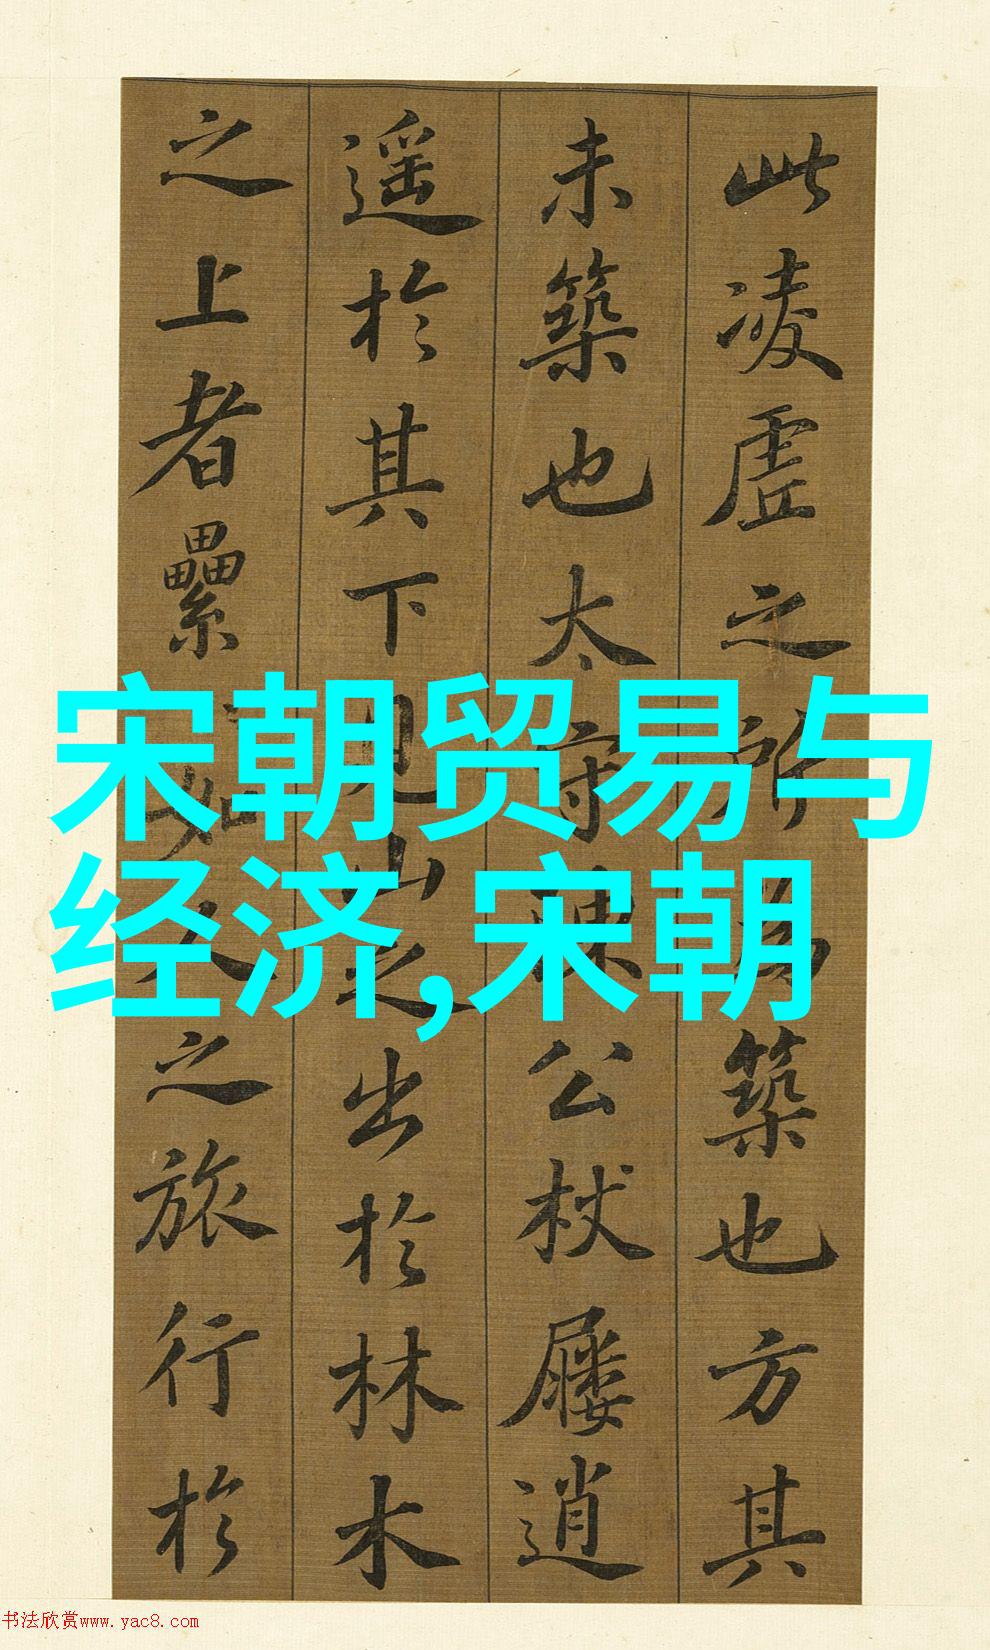 此凌虚之所為築也方其
未築也太守陳公杖屨逍
遥於其下見山之出於林木
之上者纍如人之旅行於
宋朝贸易与
经济,宋朝
书法欣赏www.yac8.com